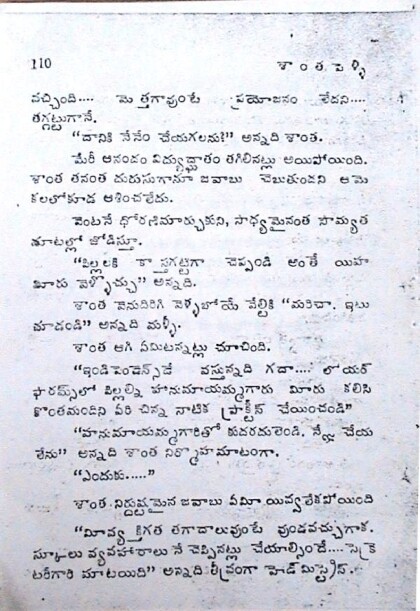 110 శాంత పెళ్ళి
వచ్చింది.... మెత్తగావుంటే ప్రయోజనం లేదని....
తగ్గట్టుగానే.
“దానికి నేనేం చేయగలను?” అన్నది శాంత.
మేరీ ఆనందం విద్యుద్ఘాతం తగిలినట్లు అయిపోయింది.
శాంత తనంత దురుసుగానూ జవాబు చెబుతుందని ఆమె
కలలోకూడ ఆశించలేదు.
వెంటనే ధోరణిమార్చుకుని, సాధ్యమైనంత సౌమ్యత
మాటల్లో జోడిస్తూ.
“పిల్లలకి కాస్తగట్టిగా చెప్పండి అంతే యిహ
మీరు వెళ్ళొచ్చు” అన్నది.
శాంత వెనుదిరిగి వెళ్ళబోయే వేల్టికి “మరిచా. ఇటు
చూడండి” అన్నది మళ్ళీ.
శాంత ఆగి ఏమిటన్నట్లు చూచింది.
“ఇండిపెండెన్స్‌డే వస్తున్నది గదా.... లోయర్
ఫారమ్స్‌లో పిల్లల్ని హనుమాయమ్మగారు మీరు కలిసి
కొంతమందిని ఏరి చిన్న నాటిక ప్రాక్టీస్ చేయించండి”
“హనుమాయమ్మగారితో కుదరదులెండి. నే చేయ
లేను” అన్నది శాంత నిర్మొహమాటంగా.
“ఎందుకు.....”
శాంత నిర్దుష్టమైన జవాబు ఏమీ యివ్వలేకపోయింది
“మీవ్యక్తిగత తగాదాలువుంటే వుండవచ్చుగాక.
స్కూలు వ్యవహారాలు నే చెప్పినట్లు చేయాల్సిందే.... సెక్రె
టరీగారి మాటయిది” అన్నది తీవ్రంగా హెడ్‌మిస్ట్రెస్.